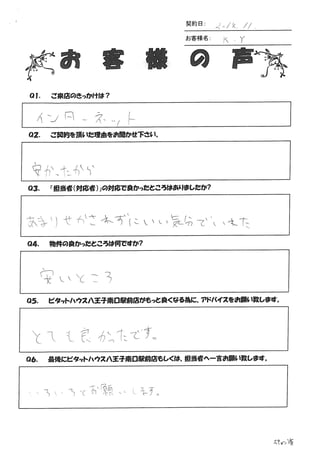 契約日:
お客様名: K.Y
お客様の声
Q1. ご来店のきっかけは?
インターネット
Q2. ご契約を頂いた理由をお聞かせ下さい。
安かったから
Q3. 「担当者(対応者)」の対応で良かったところはありましたか?
あまりせかされずにいい気分でいれた
Q4. 物件の良かったところは何ですか?
安いところ
Q5. ピタットハウス八王子南口駅前店がもっと良くなる為に、アドバイスをお願い致します。
とても良かったです。
Q6. 最後にピタットハウス八王子南口駅前店もしくは、担当者へ一言お願い致します。
いろいろとお願いします。